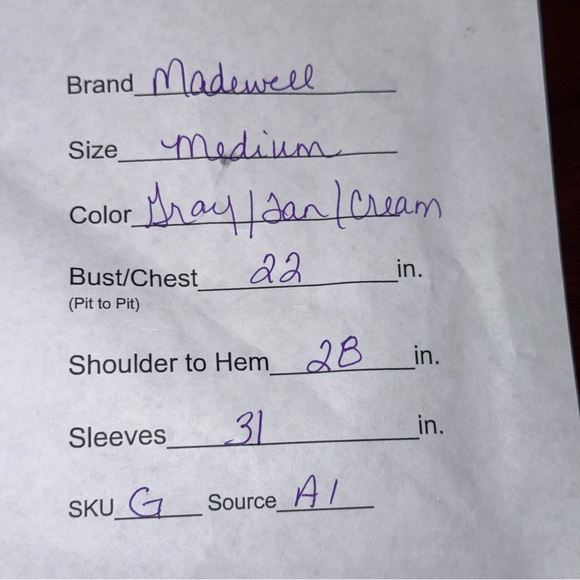 Brand Madewell
Size Medium
Color Gray/Tan/Cream
Bust/Chest 22 in.
(Pit to Pit)
Shoulder to Hem 28 in.
Sleeves 31 in.
SKU G Source A1